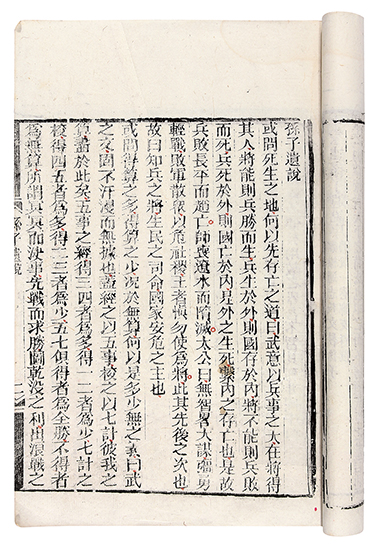 孫子遺說
或問死生之地何以先存亡之道曰武意以兵事之大在將得
其人將能則兵勝而生兵生於外則國存於內將不能則兵敗
而死兵死於外則國亡於內是外之生死繫內之存亡也是故
兵敗長平而趙亡師喪遼水而隋滅太公曰無智畧大謀彊勇
輕戰敗軍散眾以危社稷王者慎勿使為將此其先後之次也
故曰知兵之將生民之司命國家安危之主也
或問得算之多得算之少況於無算何以是多少無之義曰武
之文固不汗漫而無據也蓋經之以五事校之以七計彼我之
算盡於此矣五事之經得三四者為多得一二者為少七計之
校得四五者為多得二三者為少五七俱得者為全勝不得者
為無算所謂冥冥而決事先戰而求勝圖乾沒之利出浪戰之
孫子遺說